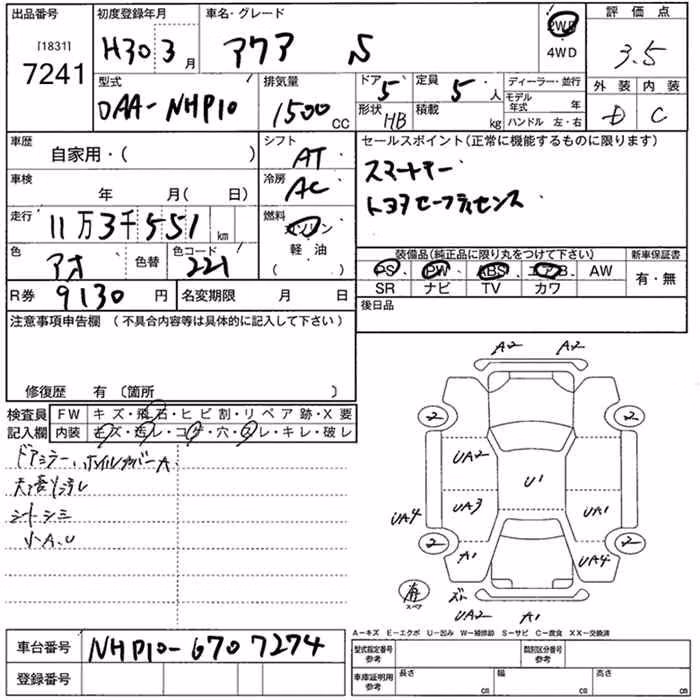 出品番号
[1831]
7241
初度登録年月
H30 3 月
車名・グレード
アクア S
2WD
4WD
評価点
3.5
外装 内装
D C
型式
DAA-NHP10
排気量
1500 CC
ドア 5
定員 5 人
形状 HB
積載 kg
ディーラー・並行
モデル年式 年
ハンドル 左・右
車歴
自家用・( )
シフト
AT
車検
年 月( 日)
冷房
AC
走行
11万3千551 km
燃料
ガソリン
軽・油
( )
色
アオ
色替
色コード
221
R券 9130 円
名変期限 月 日
セールスポイント(正常に機能するものに限ります)
スマートキー
トヨタセーフティセンス
装備品(純正品に限り丸をつけて下さい)
新車保証書
PS PW ABS エアB. AW
SR ナビ TV カワ
有・無
後日品
注意事項申告欄 (不具合内容等は具体的に記入して下さい)
修復歴 有 〔箇所 〕
検査員
記入欄
FW キズ・飛石・ヒビ割・リペア跡・X要
内装 キズ・汚レ・コゲ・穴・スレ・キレ・破レ
ドアミラー、ホイルカバーA
シートシミ
小A.U
A2 A2
2 2
UA2
U1
UA4 UA3 UA1
2 2
A1 UA4
スペア
UA2 A1
A-キズ E-エクボ U-凹み W-補修跡 S-サビ C-腐食 XX-交換済
車台番号 NHP10-6707274
登録番号
型式指定番号
参考
類別区分番号
参考
車庫証明用
参考
長さ cm
幅 cm
高さ cm